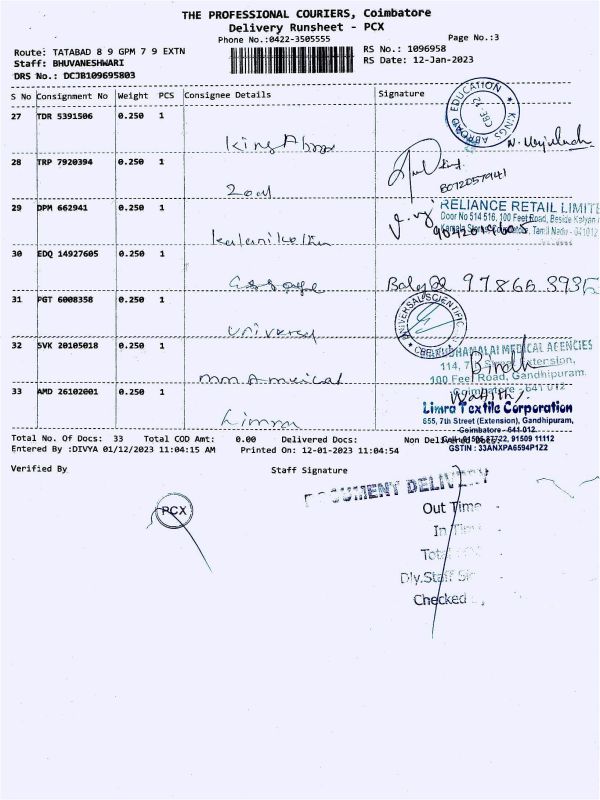 THE PROFESSIONAL COURIERS, Coimbatore
Delivery Runsheet - PCX
Phone No.:0422-3505555
Page No.:3
Route: TATABAD 8 9 GPM 7 9 EXTN
RS No.: 1096958
Staff: BHUVANESHWARI
RS Date: 12-Jan-2023
DRS No.: DCJB109695803
S No Consignment No Weight PCS Consignee Details Signature
27 TDR 5391506 0.250 1
EDUCATION KINGS ABROAD CBE-12
28 TRP 7920394 0.250 1
8072057941
29 DPM 662941 0.250 1
RELIANCE RETAIL LIMITE
Door No 514 516, 100 Feet Road, Beside Kalyan
Tamil Nadu - 641012
30 EDQ 14927605 0.250 1
31 PGT 6008358 0.250 1 Universal
UNIVERSAL SCIENTIFIC
32 SVK 20105018 0.250 1
MEDICAL AGENCIES
114, 7 Street Extension,
100 Feet Road, Gandhipuram,
Coimbatore - 641 012
33 AMD 26102001 0.250 1 Limra
Limra Textile Corporation
655, 7th Street (Extension), Gandhipuram,
Coimbatore - 641 012
Total No. Of Docs: 33 Total COD Amt: 0.00 Delivered Docs: Non Delivered Docs:
91509 11112
Entered By :DIVYA 01/12/2023 11:04:15 AM Printed On: 12-01-2023 11:04:54
GSTIN : 33ANXPA6594P1Z2
Verified By Staff Signature
DOCUMENT DELIVERY
PCX
Out Time
In Time
Dly.Staff
Checked